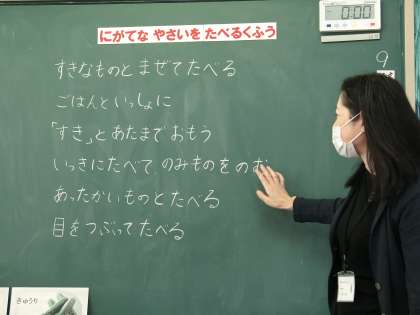 にがてな やさいを たべるくふう
0:00
9
すきなものと まぜてたべる
ごはんといっしょに
「すき」とあたまでおもう
いっきにたべて のみものをのむ
あったかいものとたべる
目をつぶってたべる
きゅうり